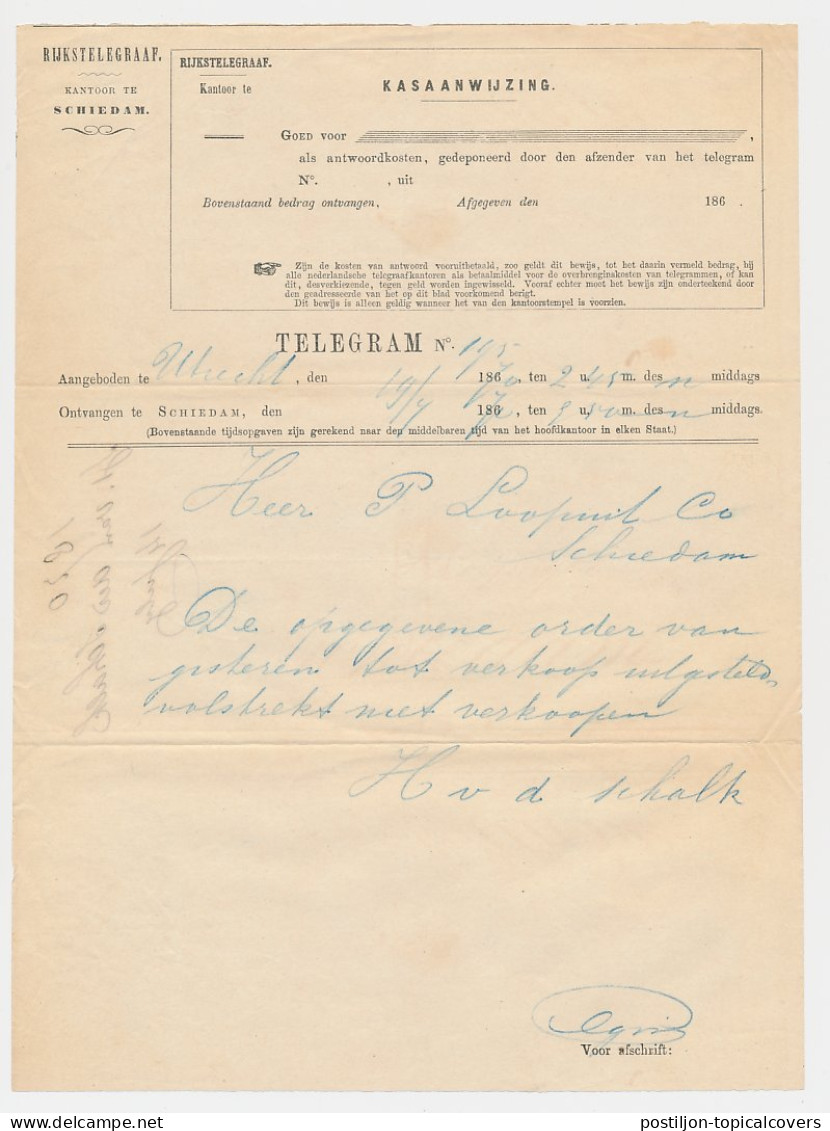 RIJKSTELEGRAAF.
KANTOOR TE
SCHIEDAM.
RIJKSTELEGRAAF.
Kantoor te
KASAANWIJZING.
GOED voor ,
als antwoordkosten, gedeponeerd door den afzender van het telegram
N°. , uit
Bovenstaand bedrag ontvangen, Afgegeven den 186 .
Zijn de kosten van antwoord vooruitbetaald, zoo geldt dit bewijs, tot het daarin vermeld bedrag, bij
alle nederlandsche telegraafkantoren als betaalmiddel voor de overbrengingskosten van telegrammen, of kan
dit, desverkiezende, tegen geld worden ingewisseld. Vooraf echter moet het bewijs zijn onderteekend door
den geadresseerde van het op dit blad voorkomend berigt.
Dit bewijs is alleen geldig wanneer het van den kantoorstempel is voorzien.
TELEGRAM N°. 195
Aangeboden te Utrecht, den 19/7 1870, ten 2 u. 45 m. des n middags
Ontvangen te SCHIEDAM, den 19/7 1870, ten 3 u. 50 m. des n middags.
(Bovenstaande tijdsopgaven zijn gerekend naar den middelbaren tijd van het hoofdkantoor in elken Staat.)
Heer P Loopuit Co
Schiedam
De opgegevene order van
gisteren tot verkoop uitgesteld
volstrekt niet verkoopen
H v d Schalk
Voor afschrift:
postiljon-topicalcovers